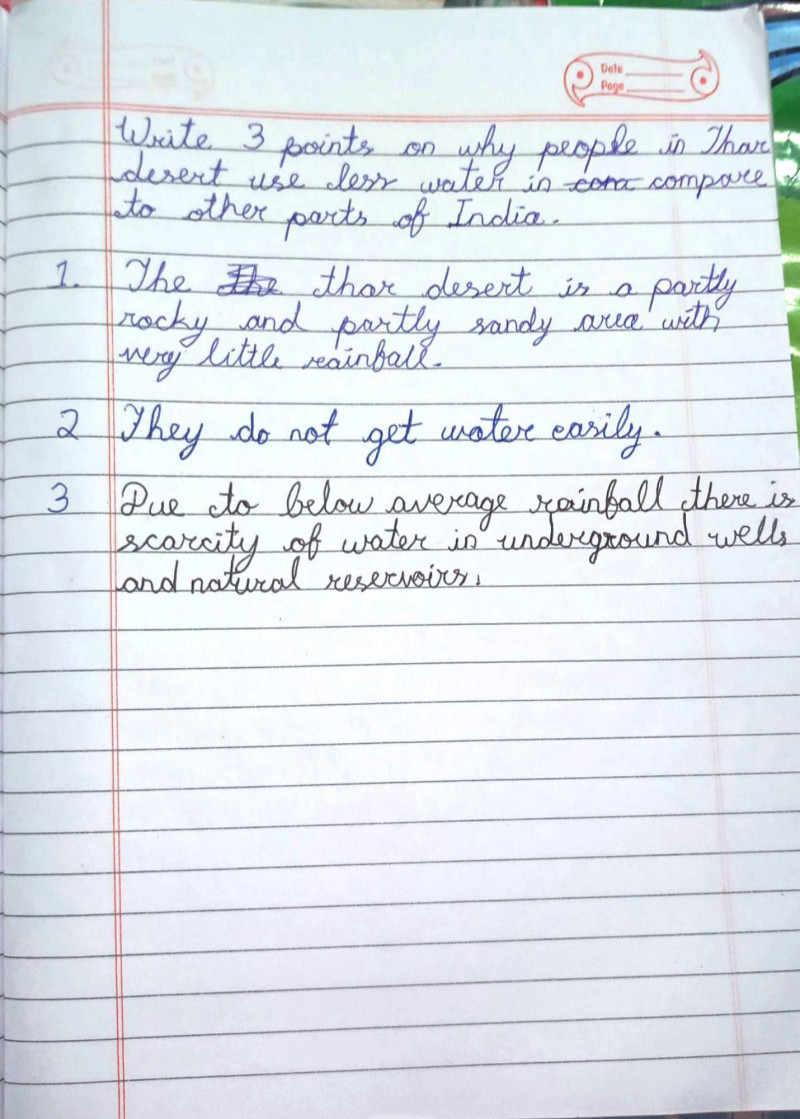 Date
Page
Write 3 points on why people in Thar
desert use less water in com compare
to other parts of India.
1. The The thar desert is a partly
rocky and partly sandy area with
very little rainfall.
2 They do not get water easily.
3 Due to below average rainfall there is
scarcity of water in underground wells
and natural reservoirs.